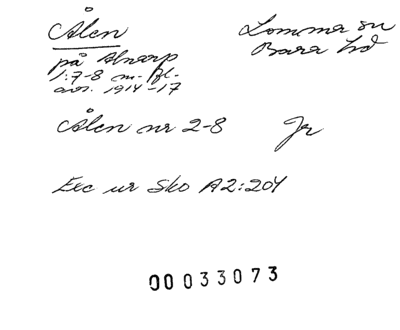 Ålen
Lomma sn
på Alnarp
Bara hd
1:7-8 m. fl.
avs. 1914-17
Ålen nr 2-8
Jr
Exc ur Sko A2:204
00033073